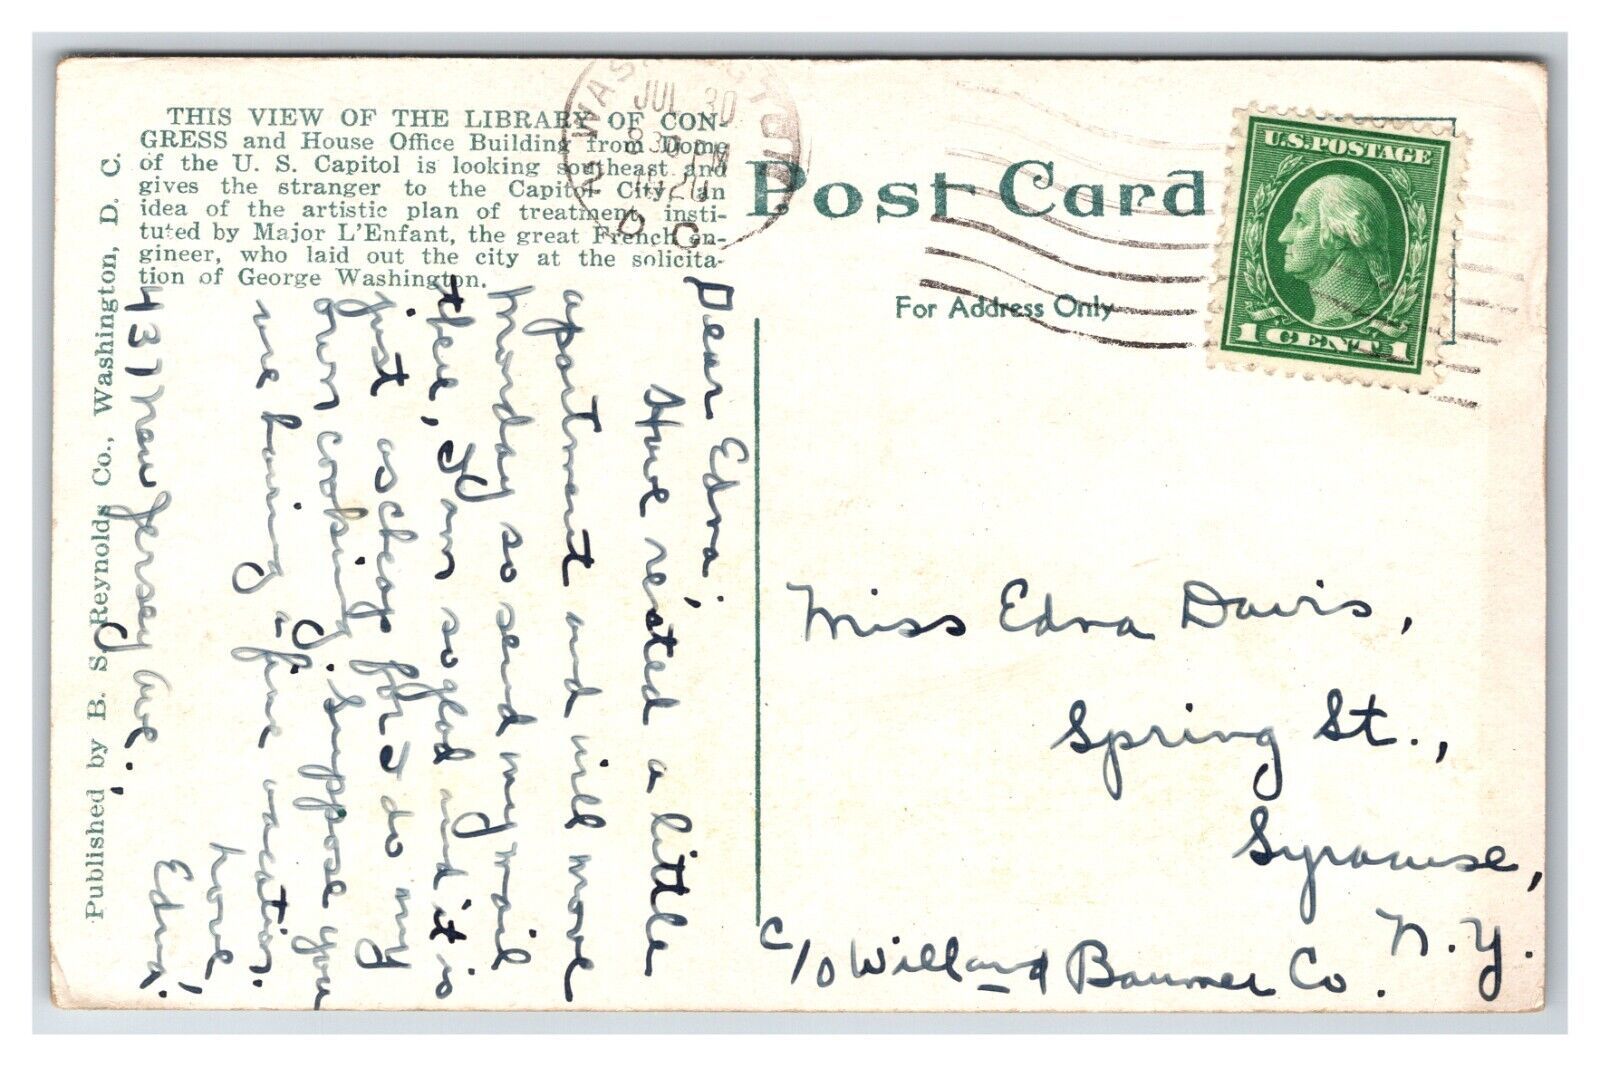 THIS VIEW OF THE LIBRARY OF CON-
GRESS and House Office Building from Dome
of the U. S. Capitol is looking southeast and
gives the stranger to the Capitol City, an
idea of the artistic plan of treatment, insti-
tuted by Major L'Enfant, the great French en-
gineer, who laid out the city at the solicita-
tion of George Washington.
Published by B. S. Reynolds Co., Washington, D. C.
WASHINGTON
JUL 30
830 PM
1920
D. C.
Post Card
For Address Only
U.S. POSTAGE
1 CENT 1
Dear Edna,
Have rented a little
apartment and will move
Monday so send my mail
there, I am so glad and it is
just as cheap for I do my
own cooking. Suppose you
are having a fine vacation.
Love,
Edna.
437 New Jersey Ave.,
Miss Edna Davis,
Spring St.,
Syracuse,
N.Y.
c/o Willard Baumer Co.